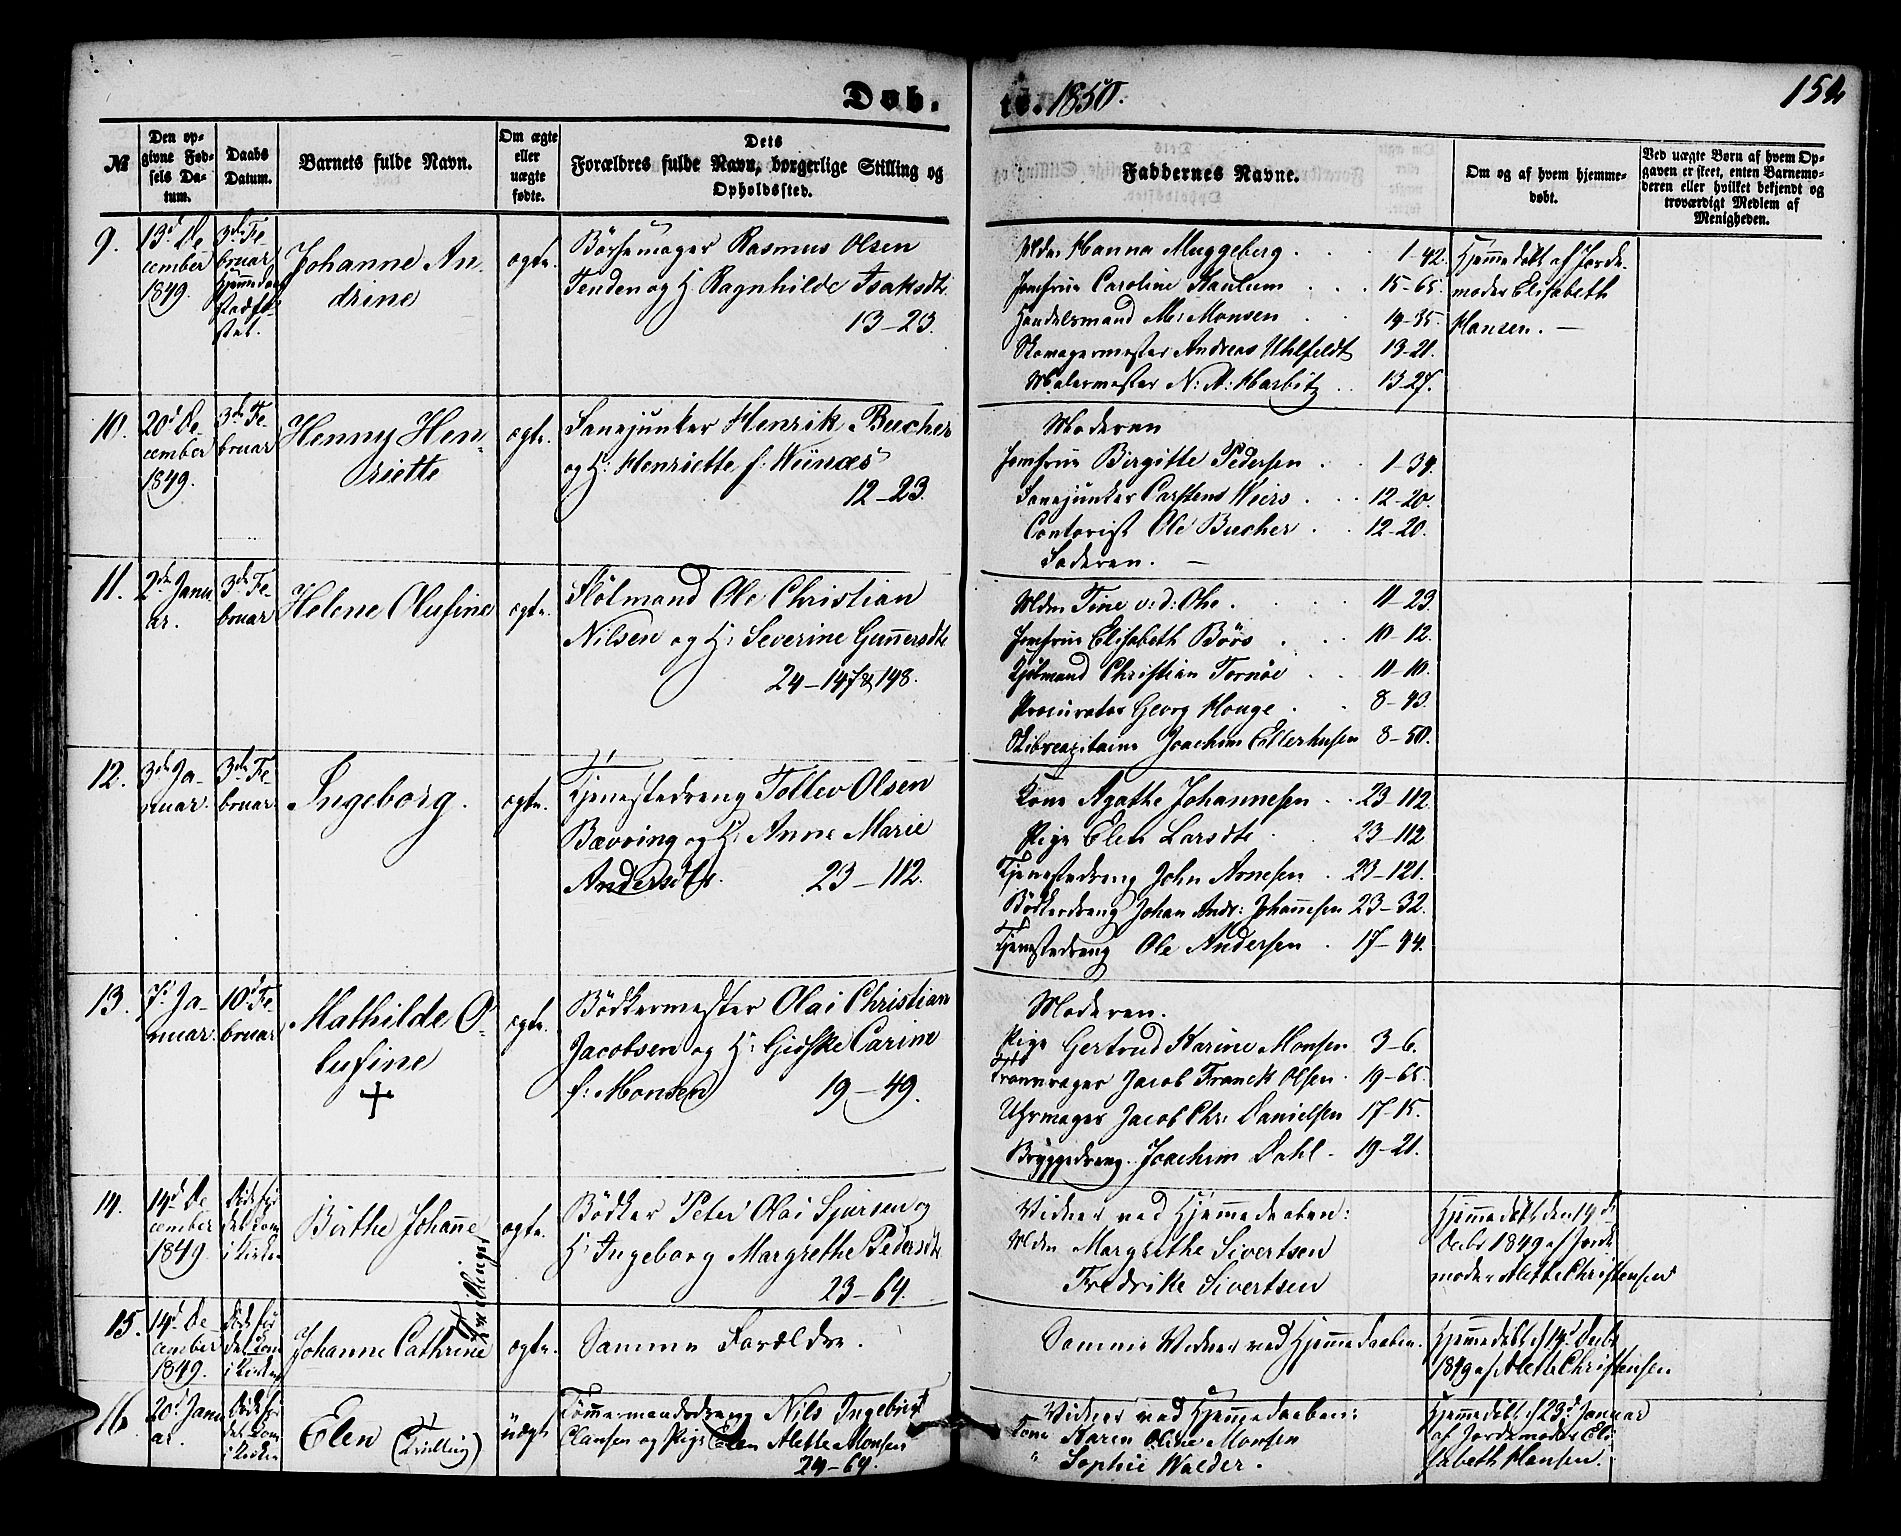 Døb.
te. 1850.
152
№
Den op-
givne Fød-
sels Da-
tum.
Daabs
Datum.
Barnets fulde Navn.
Om ægte
eller
uægte
fødte.
Dets
Forældres fulde Navn, borgerlige Stilling og
Opholdssted.
Faddernes Navne.
Om og af hvem hjemme-
døbt.
Ved uægte Børn af hvem Op-
gaven er skeet, enten Barnemo-
deren eller hvilket bekjendt og
troværdigt Medlem af
Menigheden.
9.
13d De
cember
1849.
3de Fe-
bruar
Hjemmedaab
stadfæ-
stet.
Johanne An-
drine
ægte.
Børsemager Rasmus Olsen
Tenden og H. Ragnhilde Isaksdtr
13-23.
Mdm Hanna Muggeberg 1-42.
Jomfrue Caroline Haulum 15-65.
Handelsmand M: Monsen 14-35.
Skomagermester Andreas Uhlfeldt 13-21.
Malermester N: A: Harbitz 13-27.
Hjemmedøbt af Jorde-
moder Elisabeth
Hansen. —
10.
20d De
cember
1849.
3de Fe-
bruar
Henny Hen-
riette
ægte.
Canejunker Henrik Bucher
og H: Henriette f:
12-23.
Moderen
Jomfrue Birgitte Pedersen 1-34.
Canejunker Carstens 12-20.
Contorist Ole Bucher 12-20.
Faderen. —
11.
2de Janu-
ar.
3de Fe-
bruar
Helene Olufine
ægte.
Ole Christian
Nilsen og H: Severine Gunnersdtr
24-147 & 148.
Mdm Tine v: d: Ohe. 11-23.
Jomfrue Elisabeth Børs 10-12.
Christian Tornøe 11-10.
Procurator Georg Houge 8-43.
Skibscapitaine Joachim Ellerhusen 8-50.
12.
3de Ja-
nuar.
3de Fe-
bruar.
Ingeborg.
ægte.
Tjenestedreng Tollev Olsen
Bævring og H: Anne Marie
Andersdtr. 23-112.
Kone Agathe Johannesen 23-112.
Pige Elen Larsdtr 23-112
Tjenestedreng John Arnesen 23-121.
Bødkerdreng Johan Andr: Johannesen 23-32.
Tjenestedreng Ole Andersen 17-44.
13.
7d Ja-
nuar.
10d Fe-
bruar
Mathilde O-
lufine
+
ægte.
Bødkermester Olai Christian
Jacobsen og H: Gidske Carine
f: Monsen 19-49.
Moderen.
Pige Gertrud Karine Monsen 3-6.
Jacob Franck Olsen. 19-65.
Uhrmager Jacob Chr: Danielsen 17-15.
Bryggedreng. Joachim Dahl. 19-21.
14.
14d De
cember
1849.
Døde før
det kom
i Kirken
Birthe Johanne
Tvillinger
ægte.
Bødker Peter Olai Sjursen og
H: Ingeborg Margrethe Pedersdtr
23-64.
Vidner ved Hjemmedaaben:
Mdm Margrethe Sivertsen
Fredrikke Sivertsen
Hjemmedøbt den 14d
Decbr 1849 af Jorde-
moder Alethe Christensen
15.
14d De-
cember
1849.
Døde før
det kom
i Kirken
Johanne Cathrine
ægte.
Samme Forældre.
Samme Vidner ved Hjemmedaaben.
Hjemmedøbt d 14d Decbr
1849 af Alethe Christensen
16.
20d Janu
ar.
Døde før
det kom
i Kirken
Elen (Tvilling)
uægte
Tømmermandsdreng Nils Ingebrigt
Clausen og Pige Elen Alethe Monsen
24-64.
Vidner ved Hjemmedaaben:
Kone Karen Oline Monsen
" Sophie Walder.
Hjemmedøbt d 23d Januar
af Jordemoder Eli-
sabeth Hansen.